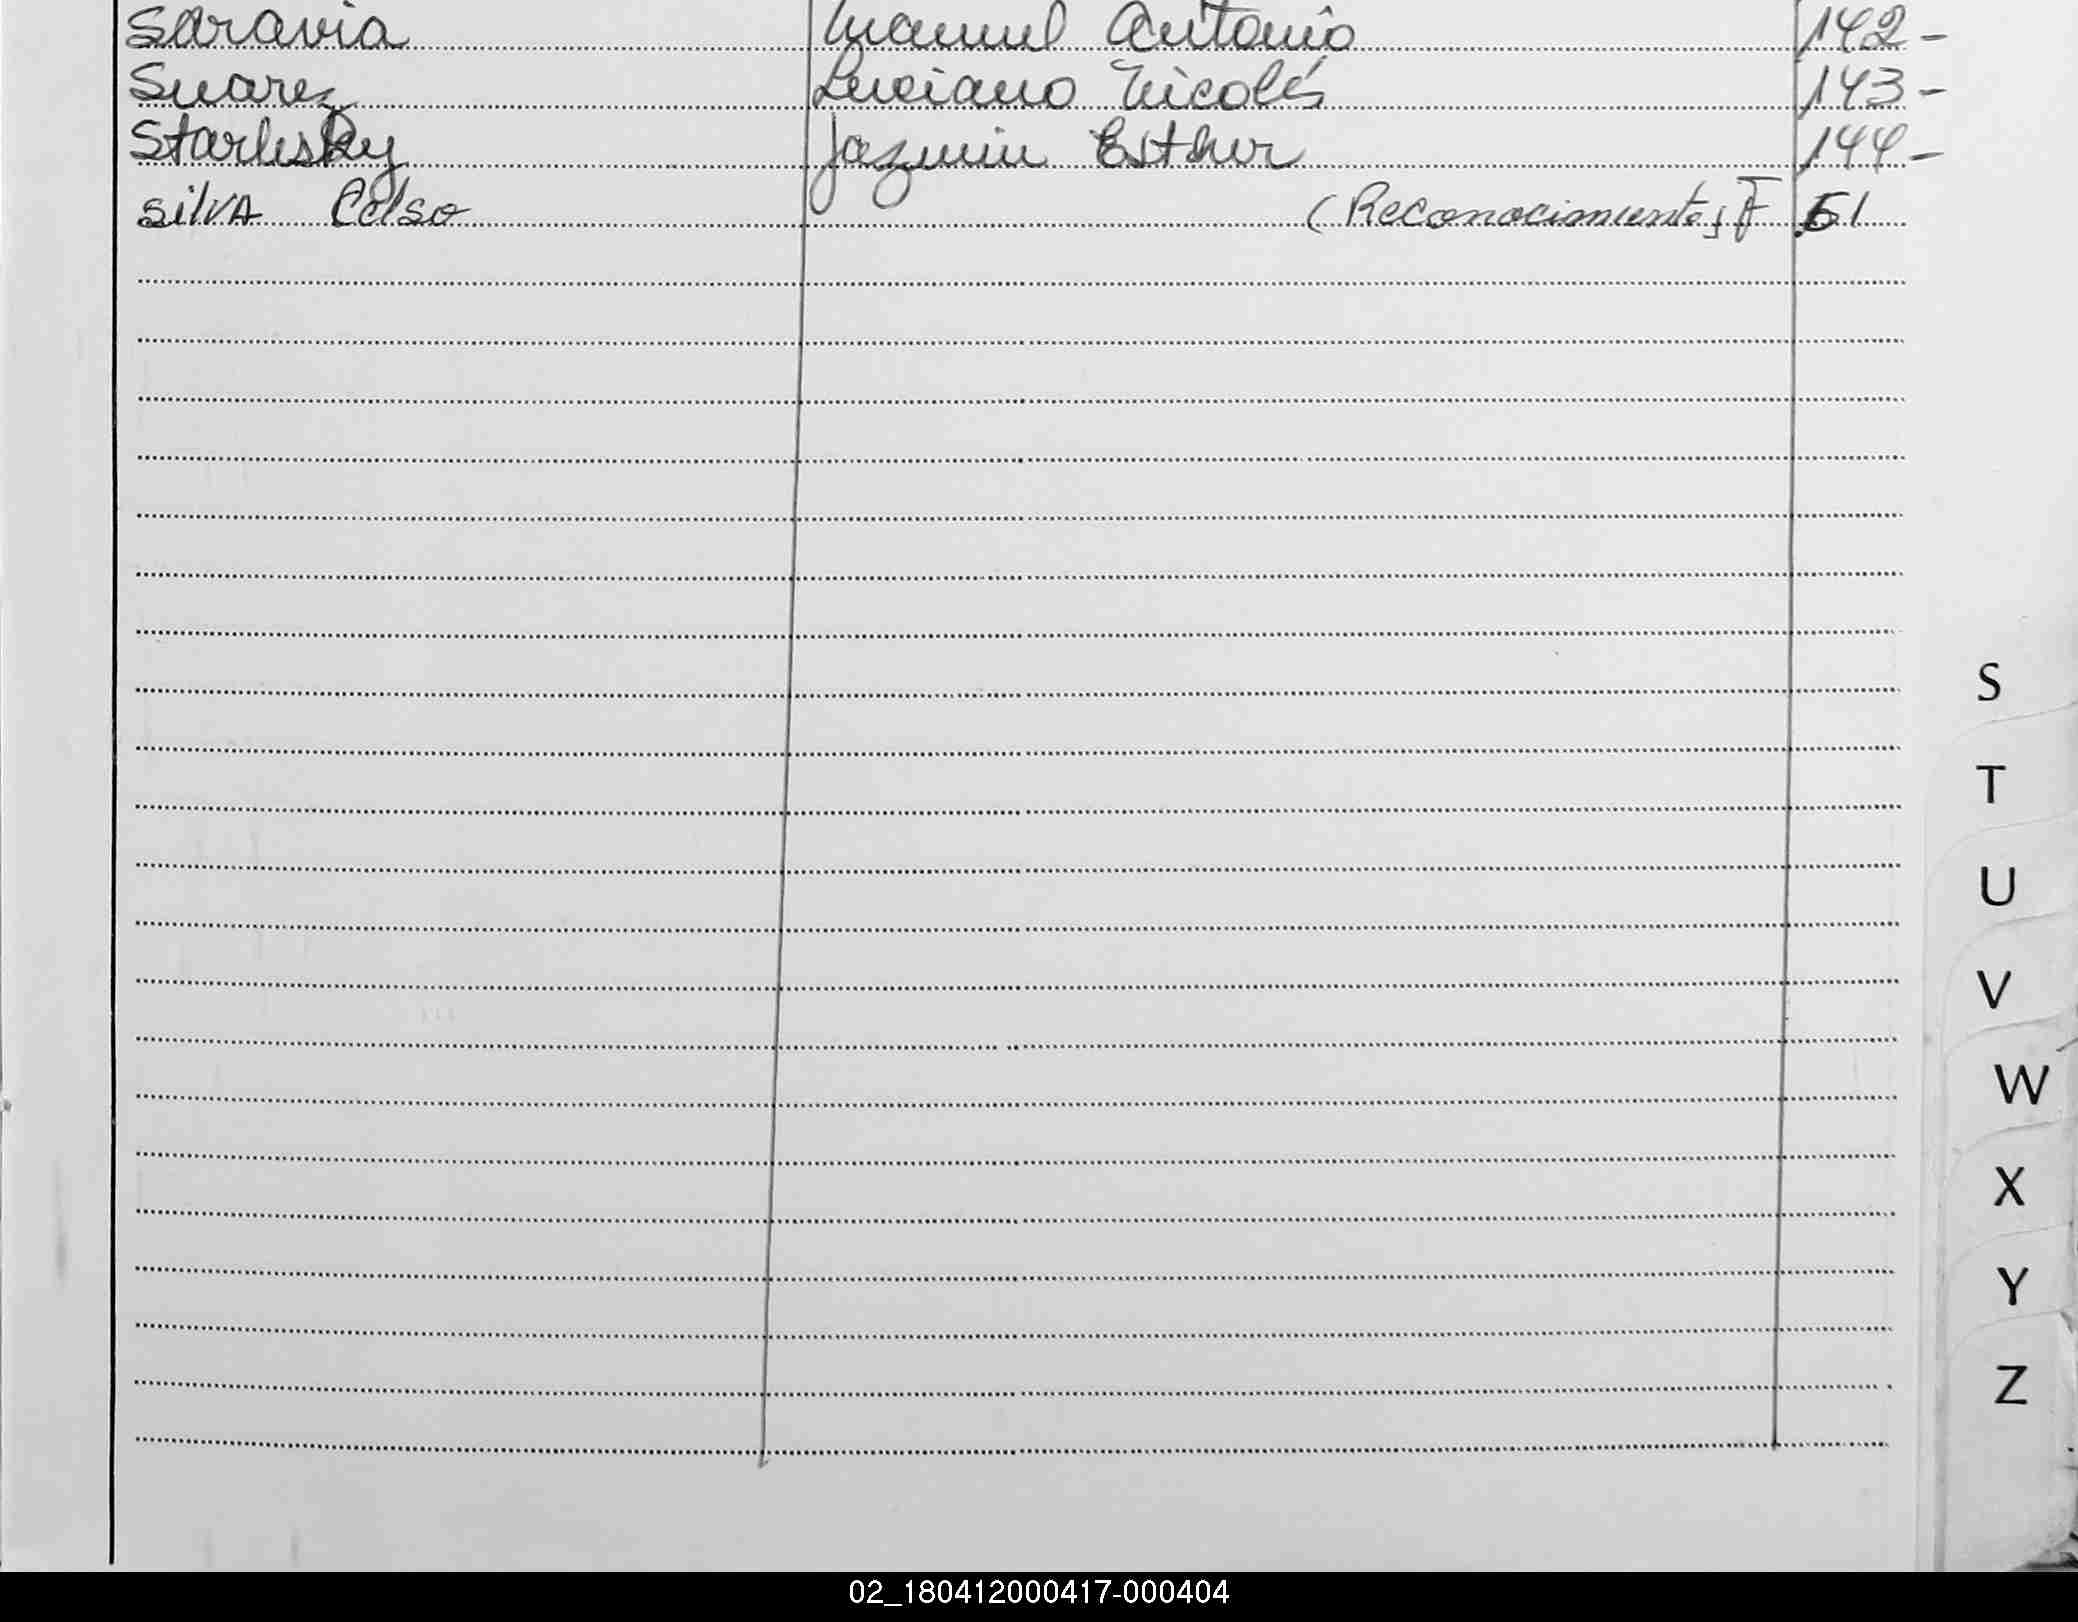 Saravia Manuel Antonio 142-
Suarez Luciano Nicolás 143-
Starlesky Jazmin Esther 144-
Silva Celso (Reconocimiento) F 51
S
T
U
V
W
X
Y
Z
02_180412000417-000404